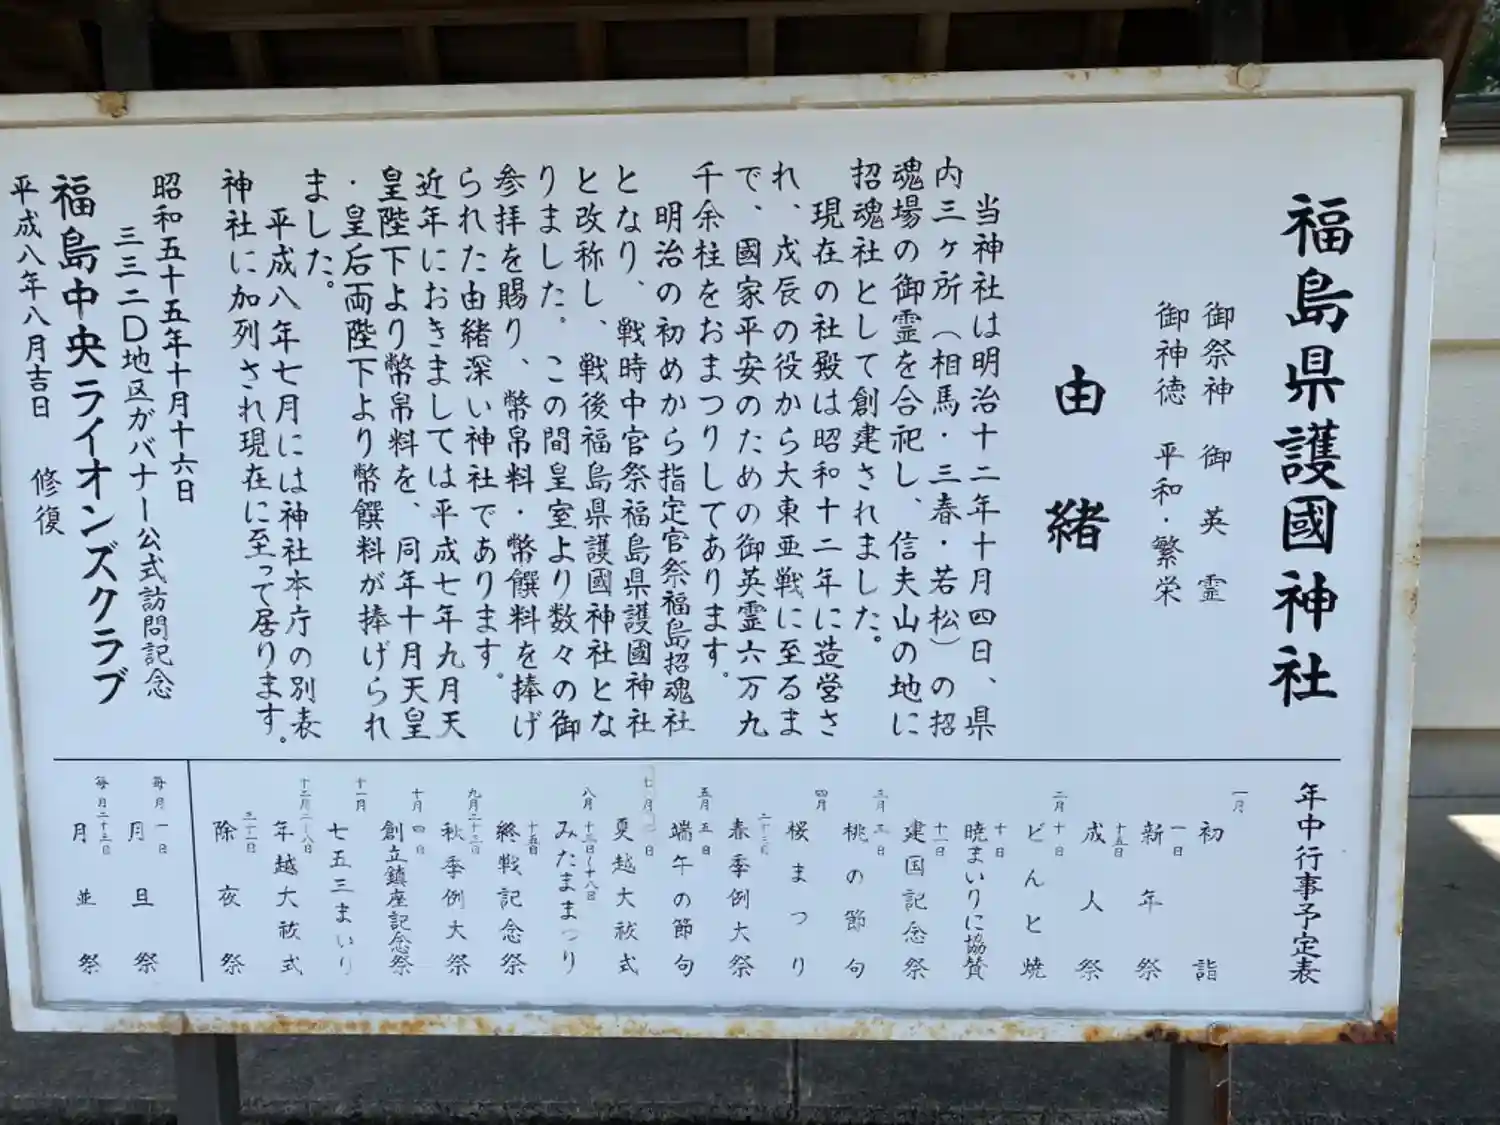 福島県護國神社
御祭神 御英霊
御神徳 平和・繁栄
由緒
当神社は明治十二年十月四日、県
内三ヶ所（相馬・三春・若松）の招
魂場の御霊を合祀し、信夫山の地に
招魂社として創建されました。
現在の社殿は昭和十二年に造営さ
れ、戊辰の役から大東亜戦に至るま
で、國家平安のための御英霊六万九
千余柱をおまつりしてあります。
明治の初めから指定官祭福島招魂社
となり、戦時中官祭福島県護國神社
と改称し、戦後福島県護國神社とな
りました。この間皇室より数々の御
参拝を賜り、幣帛料・幣饌料を捧げ
られた由緒深い神社であります。
近年におきましては平成七年九月天
皇陛下より幣帛料を、同年十月天皇
・皇后両陛下より幣饌料が捧げられ
ました。
平成八年七月には神社本庁の別表
神社に加列され現在に至って居ります。
昭和五十五年十月十六日
三三二D地区ガバナー公式訪問記念
福島中央ライオンズクラブ
平成八年八月吉日 修復
年中行事予定表
一月
一日 初詣
新年祭
十五日 成人祭
二月
十日 どんと焼
十日 暁まいりに協賛
十一日 建国記念祭
三月
三日 桃の節句
四月
桜まつり
二十三日 春季例大祭
五月
五日 端午の節句
七月
日 夏越大祓式
八月
十三日〜十八日 みたままつり
十五日 終戦記念祭
九月二十三日 秋季例大祭
十月
四日 創立鎮座記念祭
十一月
七五三まいり
十二月
年越大祓式
三十一日 除夜祭
毎月一日 月旦祭
毎月二十三日 月並祭